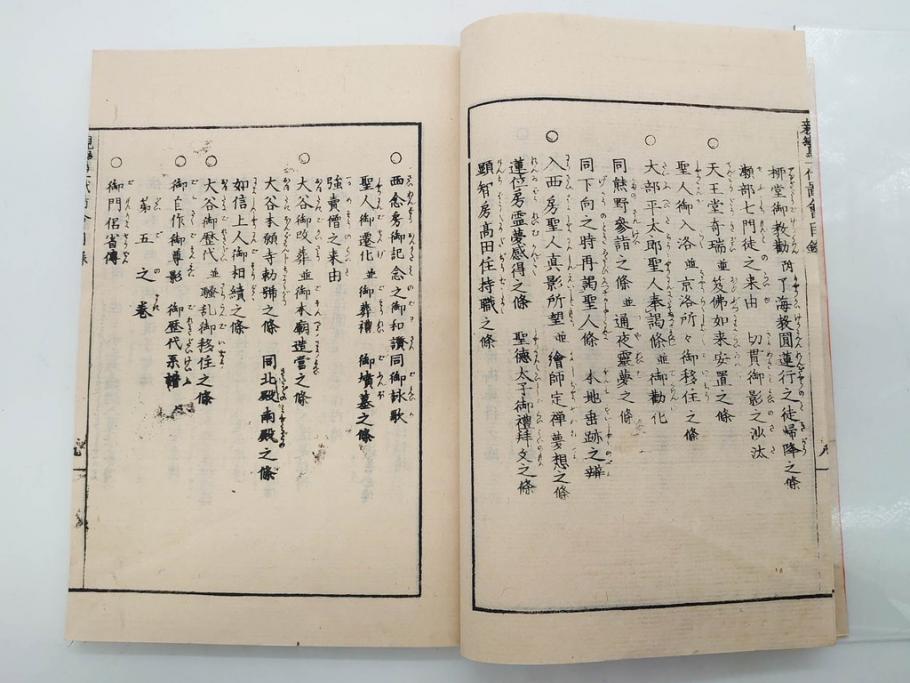 柳堂御教勧 附 了海教圓蓮行之徒帰降之條
瀬部七門徒之来由 切貫御影之沙汰
○天王堂奇瑞 並 笈佛如来安置之條
聖人御入洛 並 京洛所々御移住之條
○大部平太郎聖人奉謁條 並 御勸化
同熊野參詣之條 並 通夜靈夢之條
同下向之時再謁聖人條 本地垂跡之辯
○入西房聖人真影所望 並 繪師定禅夢想之條
蓮位房霊夢感得之條 聖德太子御禮拜文之條
顕智房高田住持職之條
○西念房御記念之御和讃同御詠歌
聖人御遷化 並 御葬禮 御墳墓之條
強賣僧之来由
○大谷御改葬 並 御本廟造営之條
大谷本願寺勅號之條 同北殿南殿之條
如信上人御相續之條
○大谷御歴代 並 騒乱御移住之條
○御自作御尊影 御歴代系譜
第五之巻
○御門侶省傳